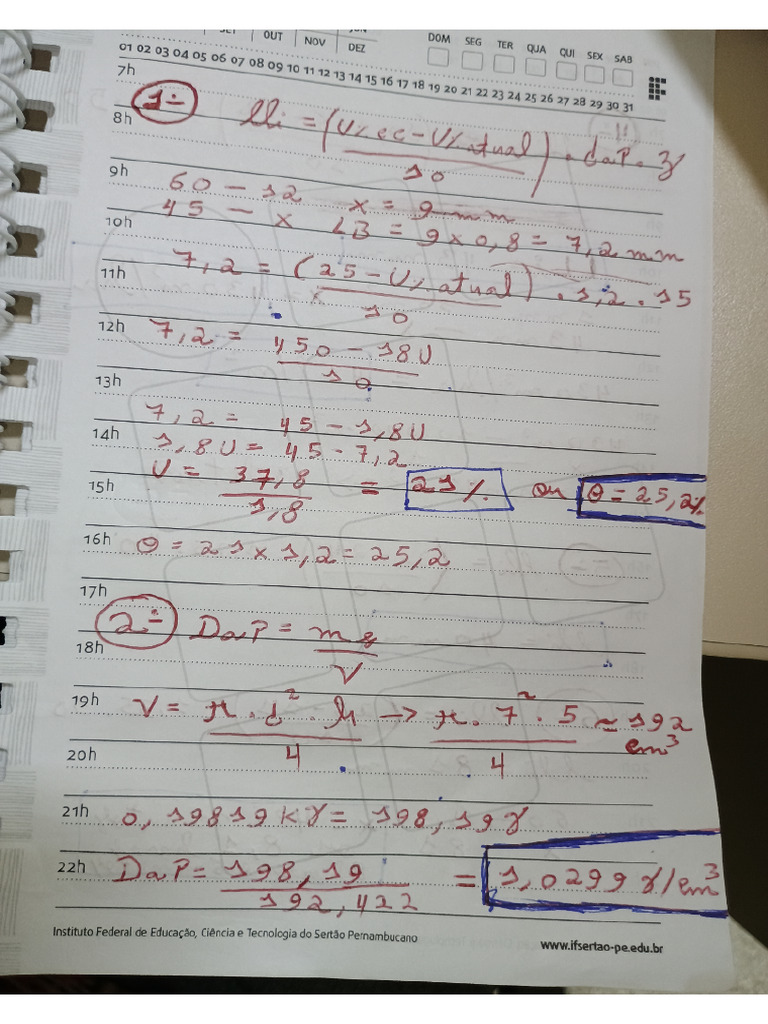 OUT NOV DEZ
DOM SEG TER QUA QUI SEX SAB
01 02 03 04 05 06 07 08 09 10 11 12 13 14 15 16 17 18 19 20 21 22 23 24 25 26 27 28 29 30 31
7h
1-
8h LLi = (U%cc - U% atual) . dap . z
10
9h 60 - 12 x = 9 mm
45 - x LB = 9 x 0,8 = 7,2 mm
10h
11h 7,2 = (25 - U% atual) . 1,2 . 15
10
12h 7,2 = 450 - 18U
10
13h
7,2 = 45 - 1,8U
14h 1,8U = 45 - 7,2
15h U = 37,8 = 21% ou θ = 25,2%
1,8
16h θ = 21 x 1,2 = 25,2
17h
2- DaP = ms
18h V
19h V = π . d² . h → π . 7² . 5 ≈ 192 cm³
20h 4 4
21h 0,19819 Kg = 198,19 g
22h DaP = 198,19 = 1,0299 g/cm³
192,422
Instituto Federal de Educação, Ciência e Tecnologia do Sertão Pernambucano
www.ifsertao-pe.edu.br